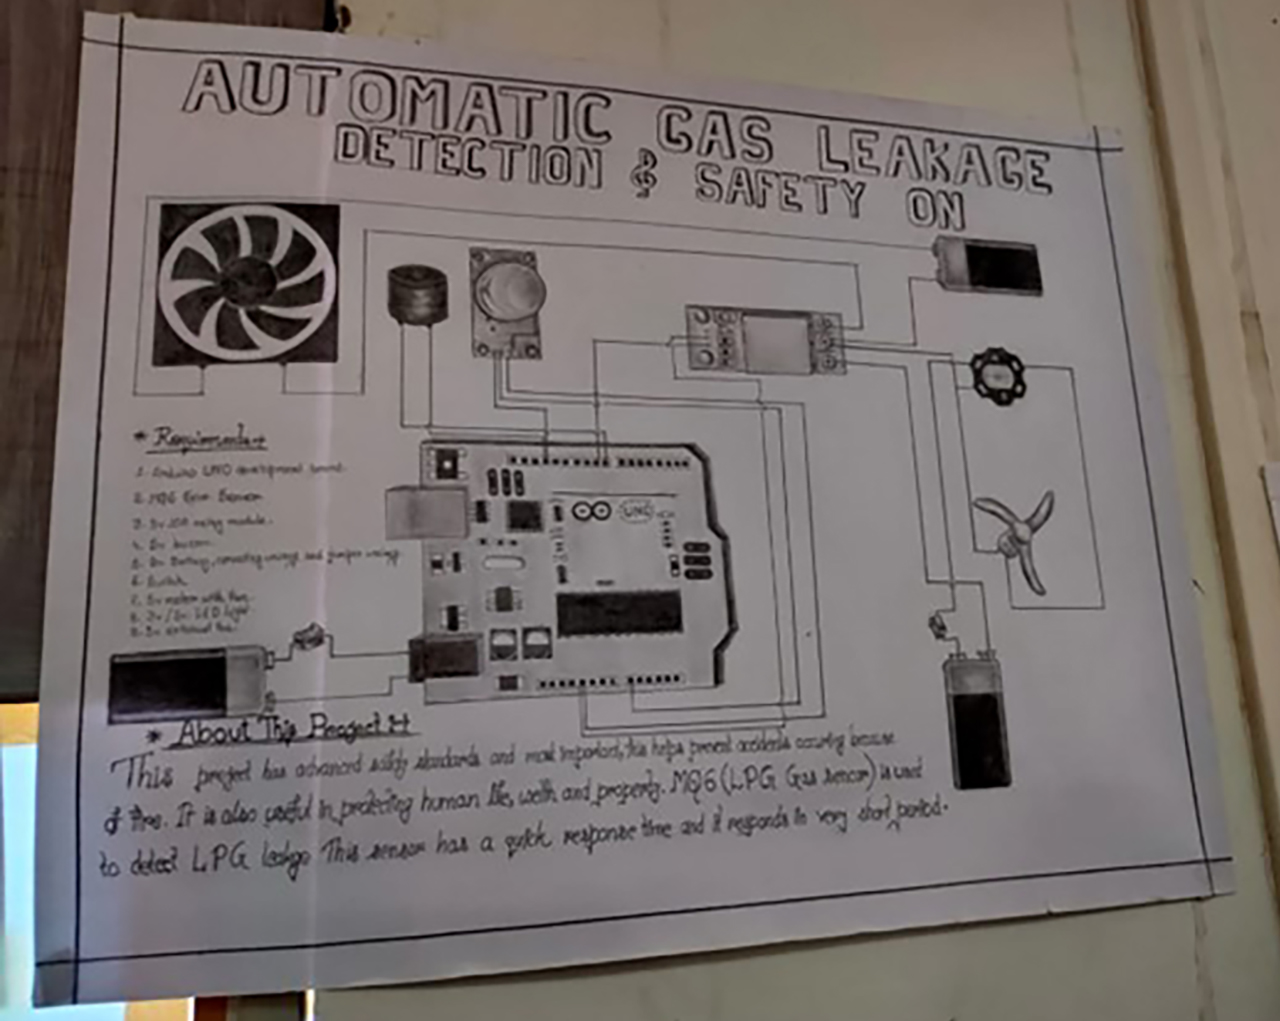 AUTOMATIC GAS LEAKAGE
DETECTION & SAFETY ON
* Requirement
1. Arduino UNO development board.
2. MQ6 Gas Sensor
3. 5v relay module.
4. 5v buzzer.
5. 9v Battery, connecting wirings and jumper wirings
6. Switch
7. 5v motor with fan.
8. 3v/5v LED light.
9. 5v external fan
UNO
* About This Peogect :-
This project has advanced safety standards and most important, this helps prevent accidents occuring because
of fires. It is also useful in protecting human life, welth and property. MQ6 (LPG Gas sensor) is used
to detect LPG leakage This sensor has a quick response time and it responds in very short period.